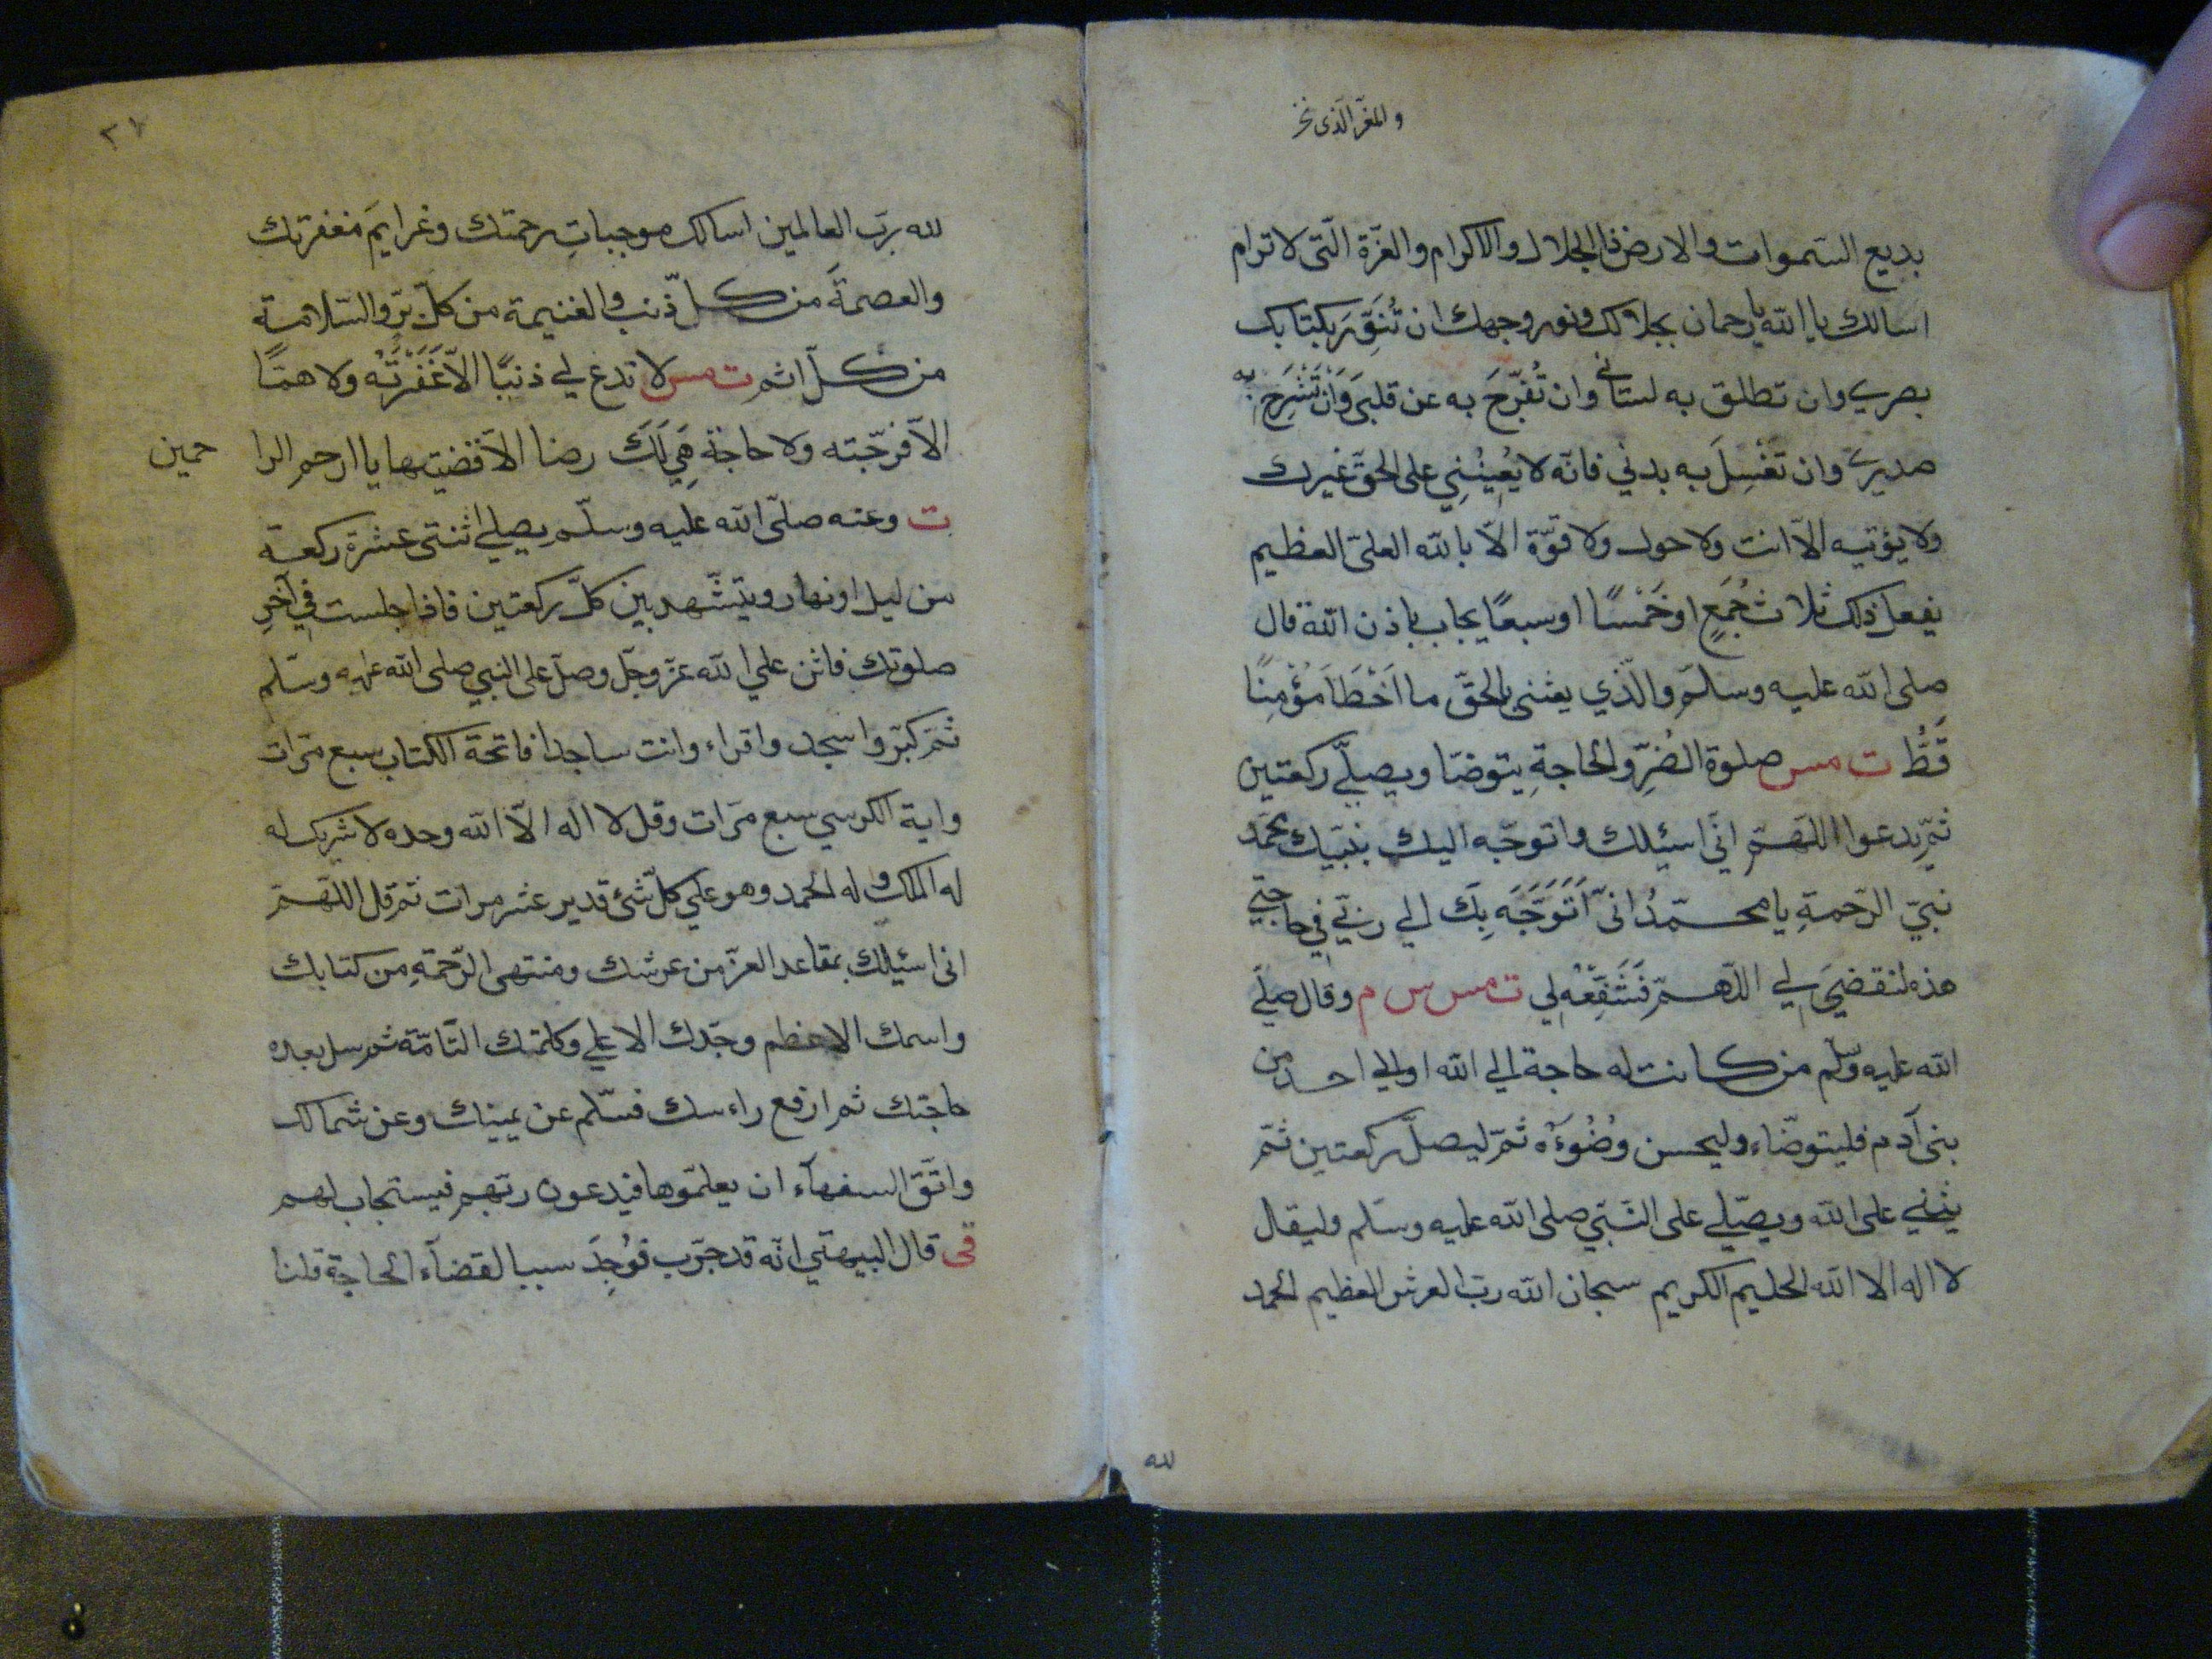 و المغر الذی نخ
بديع السّموات والارض ذا الجلال والاكرام والعزّة الّتى لا ترام
اسالك يا الله يا رحمان بجلالك ونور وجهك ان تُنَوِّرَ بكتابك
بصري وان تطلق به لسانى وان تُفَرِّجَ به عن قلبى وَاَنْ تَشْرَحَ به
صدري وان تَغْسِلَ به بدني فانّه لا يُعِيْنُنِي على الحقّ غيرك
ولا يؤتيه الّا انت ولا حول ولا قوّة الّا بالله العلىّ العظيم
يفعل ذلك ثلاث جُمَعٍ او خَمْسًا او سبعًا يجاب باذن الله قال
صلى الله عليه وسلّم والّذي بعثنى بالحقّ ما اَخْطَاَ مُؤْمِنًا
قَطُّ ت مس صلوة الضُرِّ والحاجةِ يتوضا ويصلّي ركعتين
ثمّ يدعوا اللهمّ انّى اسئلك واتوجّه اليك بنبيّك محمّد
نبيّ الرّحمةِ يا محمّدُ انّى اَتَوَجَّهُ بِكَ الي ربّي في حاجتي
هذه لتقضىَ لي اللّهمّ فَشَفِّعْهُ لي ت مس س م وقال صلّى
الله عليه وسلم من كانت له حاجة الي الله او الي احد من
بنى آدم فليتوضّاء وليحسن وُضُوءَهُ ثمّ ليصلّ ركعتين ثمّ
يثني على الله ويصلّي على النّبيّ صلى الله عليه وسلم وليقال
لا اله الا الله الحليم الكريم سبحان الله ربّ العرش العظيم الحمد
لله
٣٧
لله ربّ العالمين اسالك موجباتِ رحمتك وعزايمَ مغفرتك
والعصمةَ من كلّ ذنب والغنيمة من كلّ برّ والسّلامة
من كلّ اثم ت مس لا تدع لي ذنبًا الّا غَفَرْتَهُ ولا همًّا
الّا فرّجته ولا حاجة هِيَ لَكَ رضا الّا قضيتها يا ارحم الرا
حمين
ت وعنه صلّى الله عليه وسلّم يصلي اثنتى عشرة ركعة
من ليل او نهار ويتشّهد بين كلّ ركعتين فاذا جلست في آخِرِ
صلوتك فاثن علي الله عزّ وجلّ وصلّ على النبي صلى الله عليه وسلم
ثمّ كبّر واسجد واقراء وانت ساجدا فاتحة الكتاب سبع مرّات
واية الكرسي سبع مرّات وقل لا اله الّا الله وحده لا شريك له
له الملك وله الحمد وهو علي كلّ شئ قدير عشر مرات ثم قل اللّهمّ
انى اسئلك بمقاعد العزّ من عرشك ومنتهى الرّحمةِ من كتابك
واسمك الاعظم وجدّك الاعلي وكلمتك التّامّة ثم سل بعده
حاجتك ثم ارفع راءسك فسلّم عن يمينك وعن شمالك
واتّق السفهآء ان يعلّموها فيدعون ربّهم فيستجاب لهم
قى قال البيهقي انّه قد جرّب فوُجِدَ سببا لقضآء الحاجة قلنا